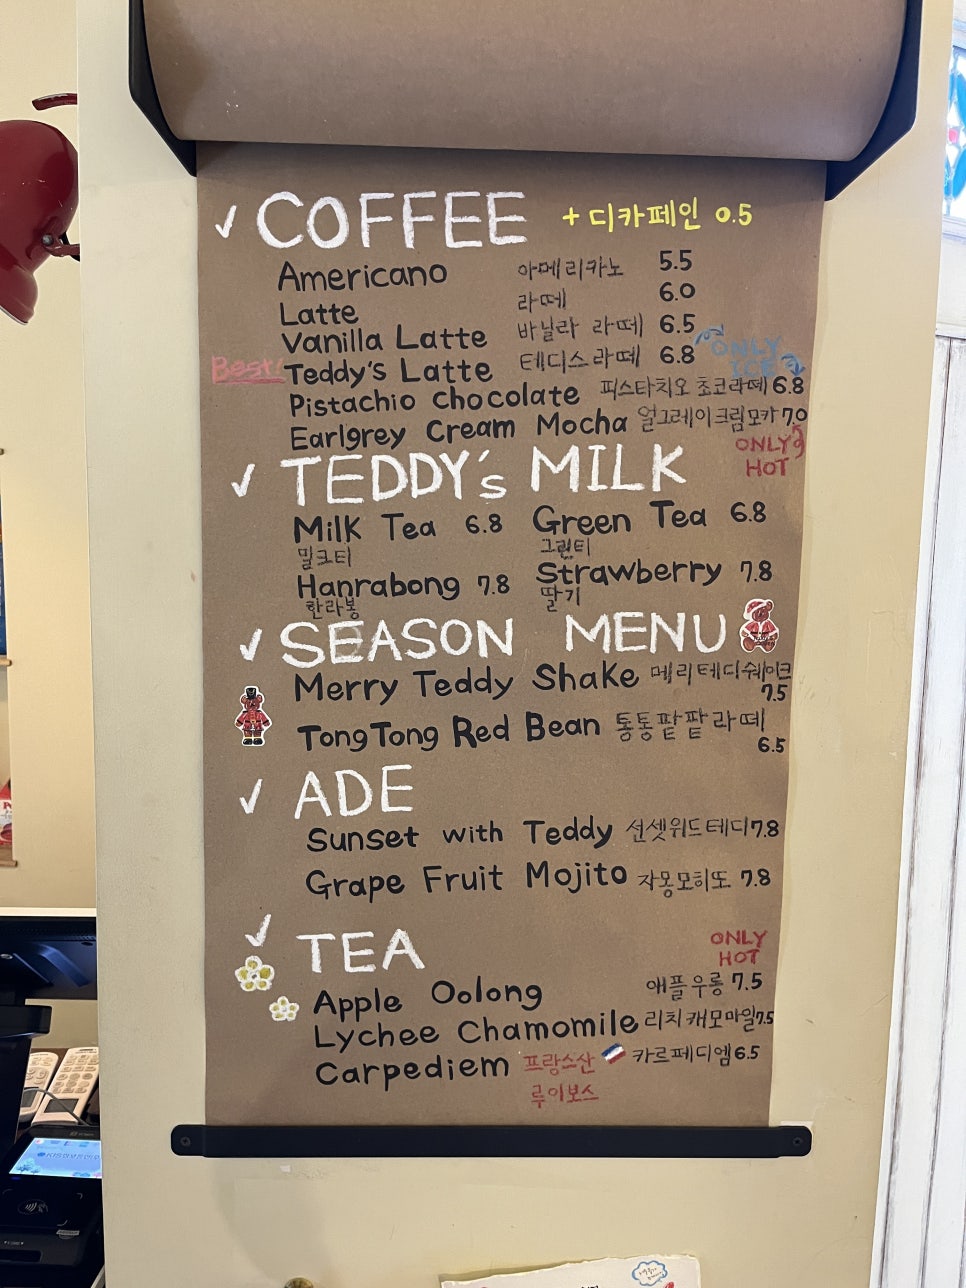 ✓ COFFEE + 디카페인 0.5
Americano 아메리카노 5.5
Latte 라떼 6.0
Vanilla Latte 바닐라 라떼 6.5
ONLY
ICE
Best! Teddy's Latte 테디스라떼 6.8
Pistachio chocolate 피스타치오 초코라떼 6.8
Earlgrey Cream Mocha 얼그레이크림모카 7.0
ONLY
HOT
✓ TEDDY's MILK
Milk Tea 6.8 Green Tea 6.8
밀크티 그린티
Hanrabong 7.8 Strawberry 7.8
한라봉 딸기
✓ SEASON MENU
Merry Teddy Shake 메리테디쉐이크
7.5
TongTong Red Bean 통통팥팥라떼
6.5
✓ ADE
Sunset with Teddy 선셋위드테디 7.8
Grape Fruit Mojito 자몽모히또 7.8
✓ TEA
ONLY
HOT
Apple Oolong 애플우롱 7.5
Lychee Chamomile 리치캐모마일 7.5
Carpediem 프랑스산 카르페디엠 6.5
루이보스